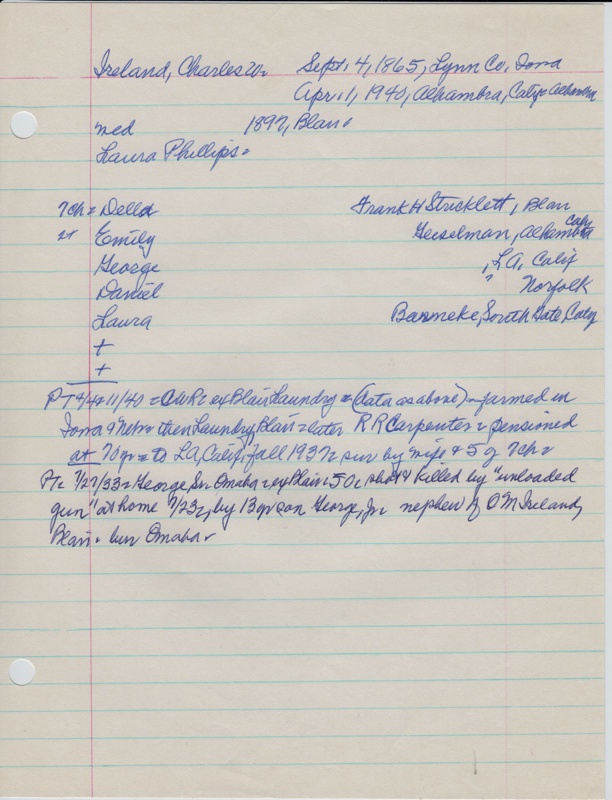 Ireland, Charles W= Sept. 4, 1865, Lynn Co, Iowa
Apr. 1, 1940, Alhambra, Calif= Alhambra
med 1897, Blair=
Laura Phillips=
7ch= Della Frank H Stricklett, Blair
2+ Emily Geiselman, Alhambra Calif
George , LA, Calif
Daniel " Norfolk
Laura Barmeke, South Gate Calif
+
+
PT 4/11/40 = CWR= ex Blair Laundry = (data as above) - farmed in
Iowa & Nebr= then Laundry, Blair= later R R Carpenter= pensioned
at 70 yr= to LA, Calif, fall 1937= sur by wife & 5 of 7ch=
PT= 7/27/33= George, Sr. Omaha= ex Blair= 50= shot & killed by "unloaded
gun" at home 7/23=, by 13 yr son George, Jr= nephew of O M Ireland,
Blair= bur Omaha=